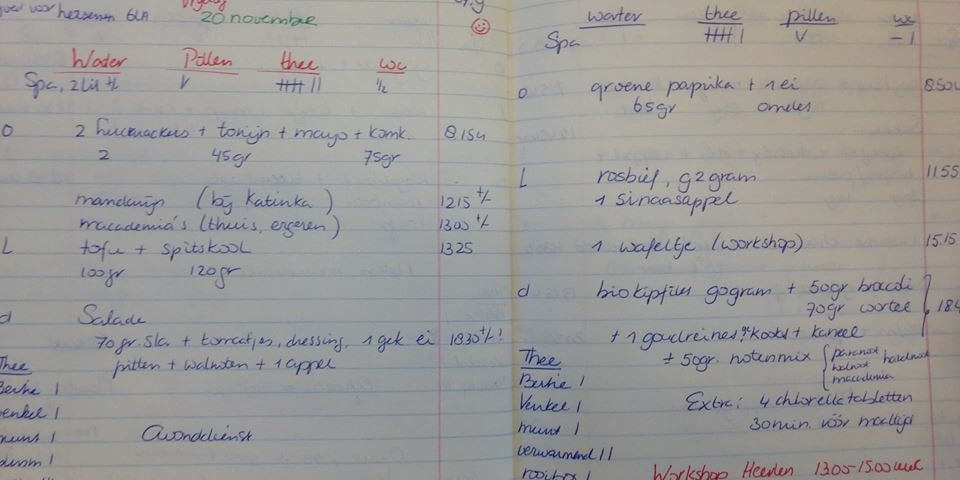 goed voor hersenen 6LA
vrijdag
20 novembre
Water Pillen thee wc
Spa, 2 Lit +/- V |||| || 1/2
O 2 + tonijn + mayo + komk. 8.15u
2 45gr 75gr
mandarijn (bij Katinka) 1215 +/-
macademia's (thuis, ergeren) 1300 +/-
L tofu + spitskool 1325
100gr 120gr
d Salade
70gr. Sla + tomaatjes, dressing, 1 gek ei 1830 +/- !
pitten + walnoten + 1 appel
Thee
Berkie 1
Venkel 1
munt 1
Avonddienst
water thee pillen wc
Spa |||| | V - 1
O groene paprika + 1 ei 850u
65gr omelet
L rosbief, 92gram 1155
1 Sinaasappel
1 wafeltje (workshop) 15.15
d bio kipfilet 90gram + 50gr broccoli
70gr wortel 184
+ 1 goudreinet + kaneel
± 50gr. notenmix { paranoot hazelnoot
walnoot
macadamia
Thee
Berkie 1
Venkel 1
munt 1
verwarmend 11
rooibos 1
Extra: 4 chlorella tabletten
30 min. vóór maaltijd
Workshop Heerlen 1300-15.00 uur